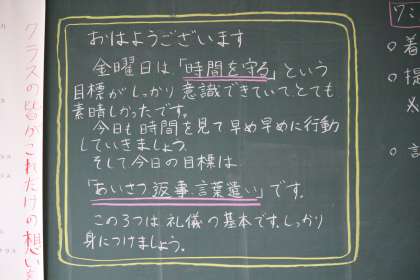 おはようございます
金曜日は「時間を守る」という
目標がしっかり意識できていてとても
素晴しかったです。
今日も時間を見て早め早めに行動
していきましょう。
そして今日の目標は
「あいさつ、返事、言葉遣い」です。
この3つは礼儀の基本です。しっかり
身につけましょう。
クラスの皆がこれだけの想いを